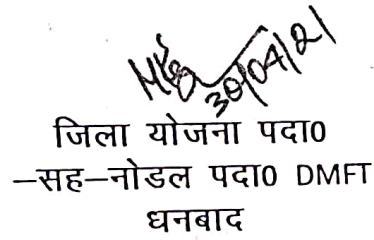 30/04/21
जिला योजना पदा0
—सह—नोडल पदा0 DMFT
धनबाद